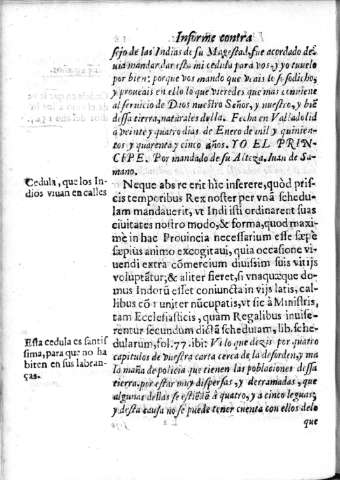 Informe contra
sejo de las Indias de su Magestad, fue acordado de
uia mandar dar esta mi cedula para vos, y yo tuuelo
por bien: porque vos mando que veais lo susodicho,
y proueais en ello lo que vieredes que mas conuiene
al seruicio de Dios nuestro Señor, y nuestro, y biẽ
dessa tierra, naturales della. Fecha en Valladolid
à veinte y quatro dias de Enero de mil y quinien-
tos y quarenta y cinco años. YO EL PRIN-
CIPE. Por mandado de su Alteza, Iuan de Sa-
mano.
Cedula, que los In-
dios viuan en calles
Neque abs re erit hîc inserere, quòd pris-
cis temporibus Rex noster per vnã schedu-
lam mandauerit, vt Indi isti ordinarent suas
ciuitates nostro modo, & forma, quod maxi-
mè in hac Prouincia necessarium esse sæpè
sæpius animo excogitaui, quia occasione vi-
uendi extra cõmercium diuisim suis vitijs
voluptãtur; & aliter fieret, si vnaquæque do-
mus Indorũ esset coniuncta in vijs latis, cal-
libus cõmuniter nũcupatis, vt sic à Ministris,
tam Ecclesiasticis, quàm Regalibus inuise-
rentur secundùm dictã schedulam, lib. sche-
dularum, fol. 77. ibi: Vi lo que dezis por quatro
Esta cedula es santis
sima, para que no ha
biten en sus labran-
ças.
capitulos de vuestra carta cerca de la desorden, y ma
la maña de policia que tienen las poblaciones dessa
tierra, por estar muy dispersas, y derramadas, que
algunas dellas se estiẽdẽ à quatro, y à cinco leguas,
y desta causa no se puede tener cuenta con ellos de lo
que